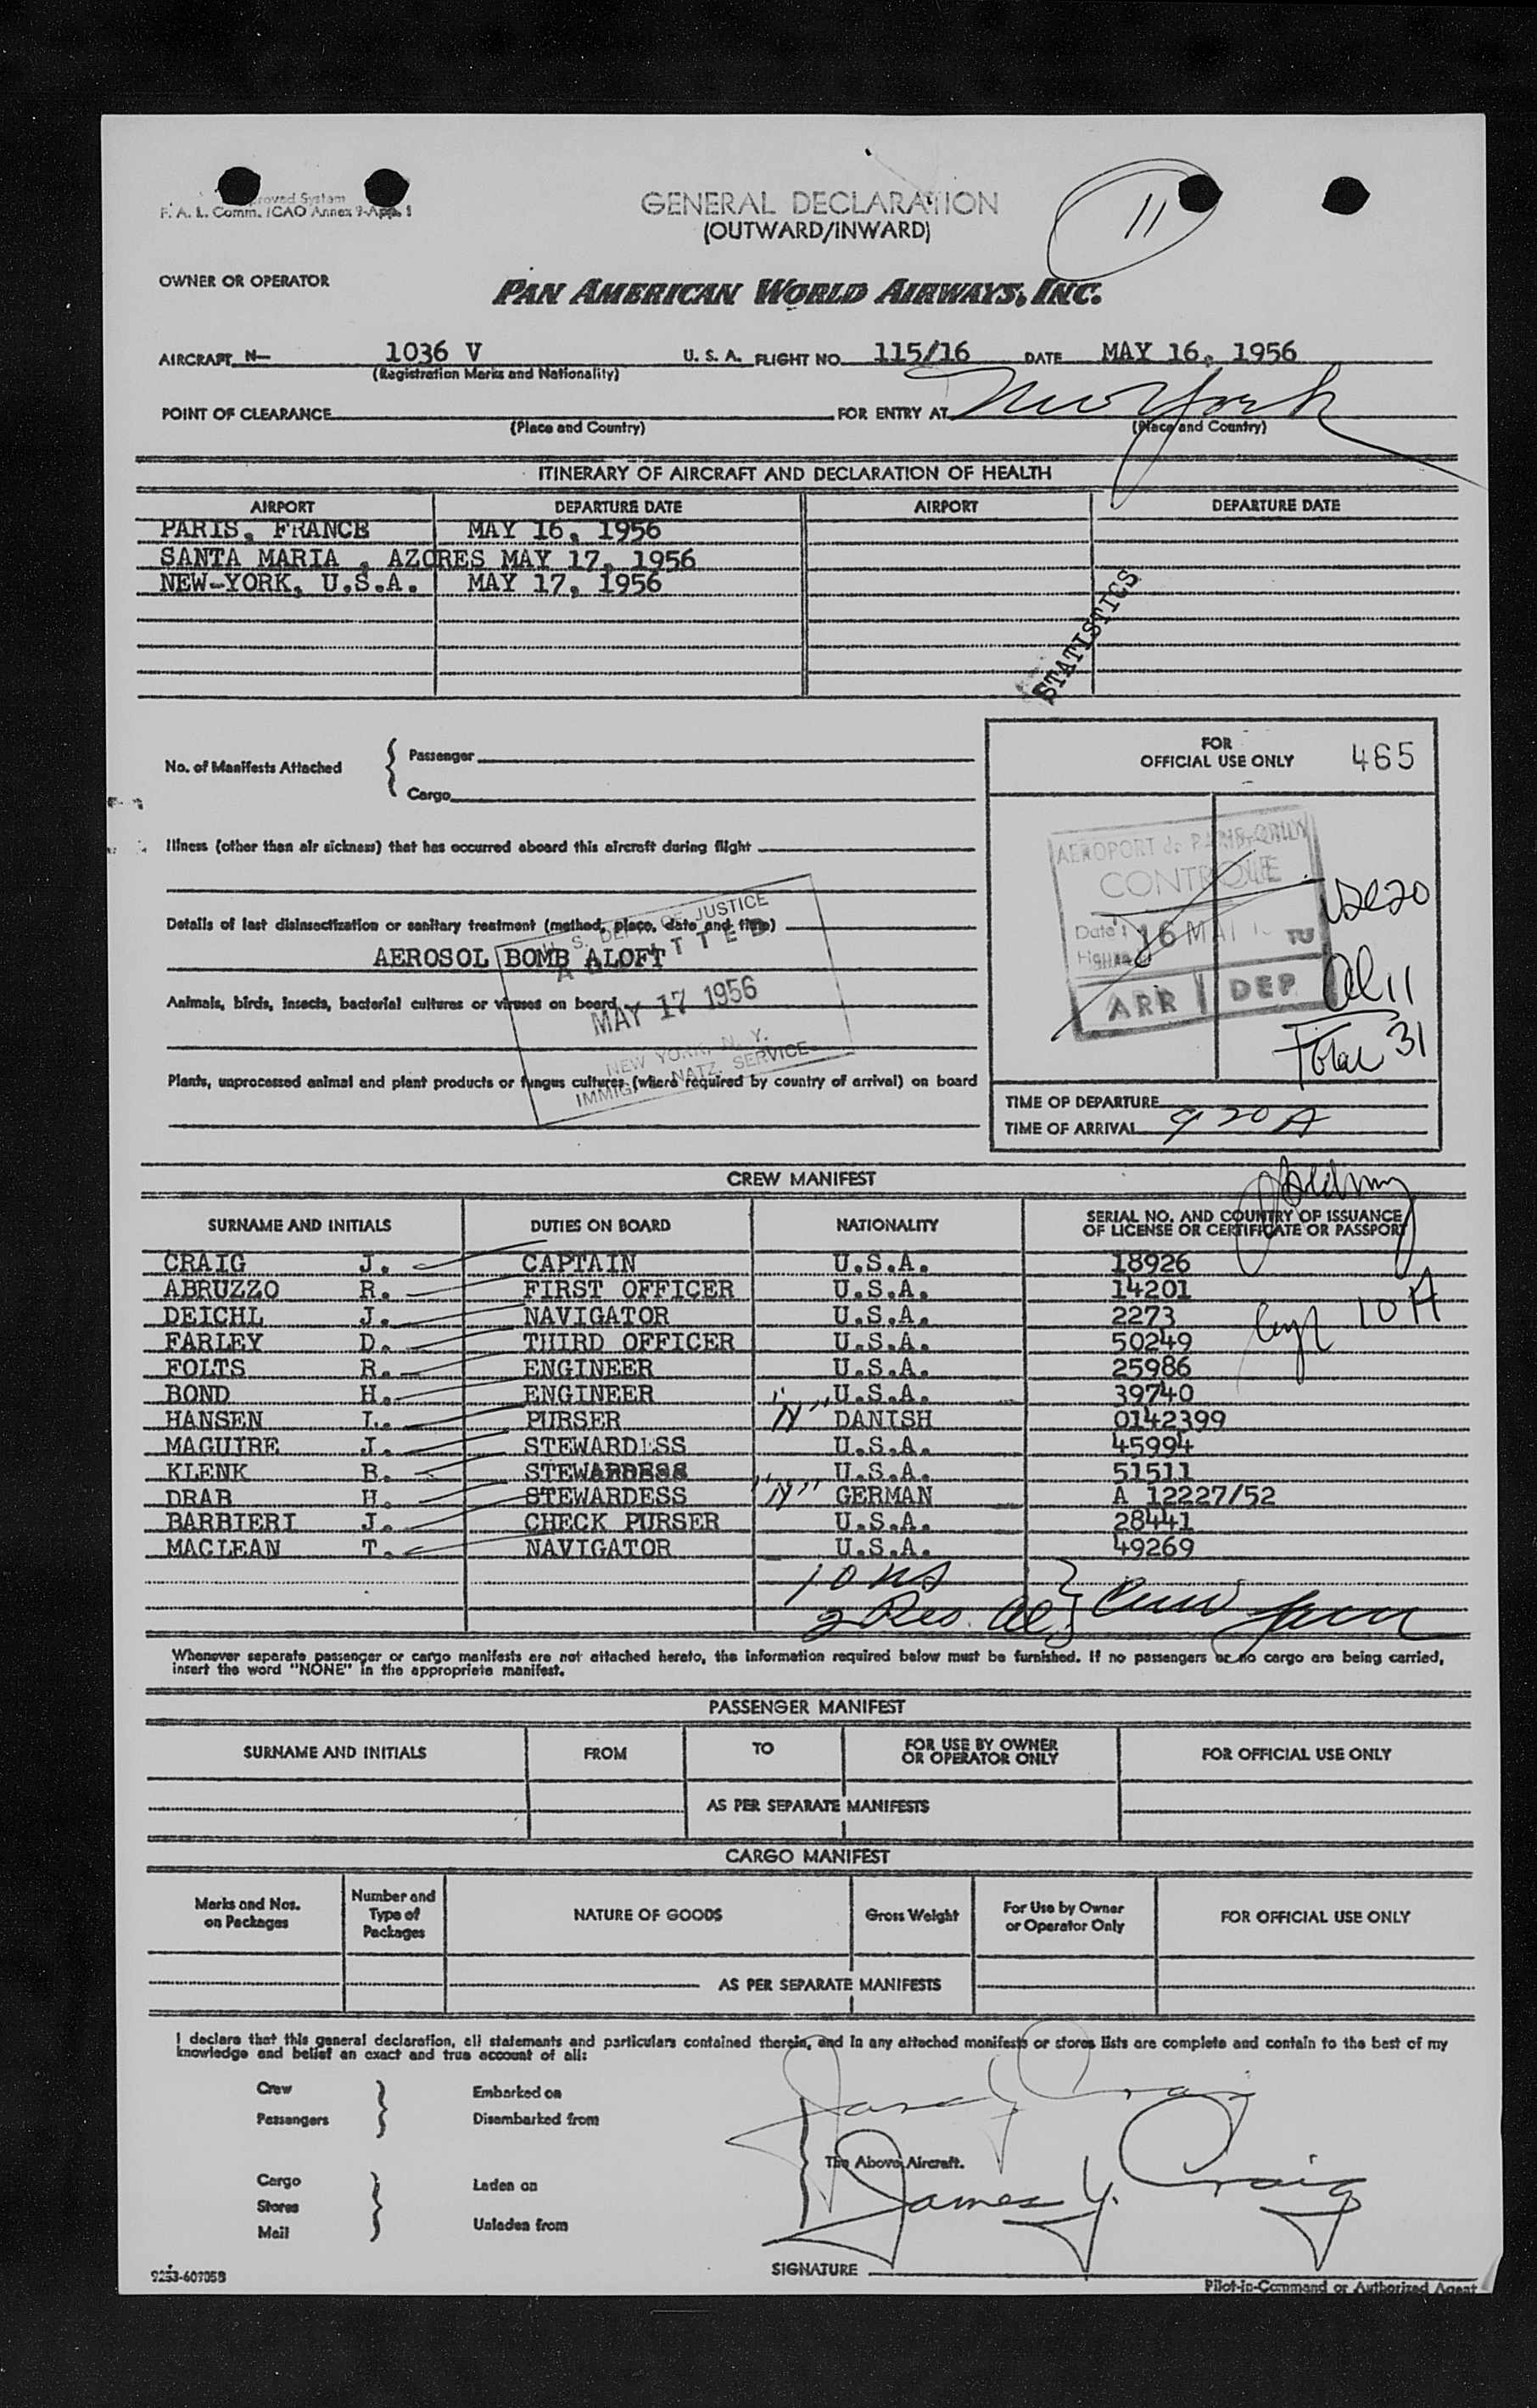 proved System
F. A. L. Comm. ICAO Annex 9-App. 1
GENERAL DECLARATION
(OUTWARD/INWARD)
11
OWNER OR OPERATOR
PAN AMERICAN WORLD AIRWAYS, INC.
AIRCRAFT N— 1036 V U. S. A. FLIGHT NO. 115/16 DATE MAY 16, 1956
(Registration Marks and Nationality)
POINT OF CLEARANCE FOR ENTRY AT New York
(Place and Country) (Place and Country)
ITINERARY OF AIRCRAFT AND DECLARATION OF HEALTH
AIRPORT DEPARTURE DATE AIRPORT DEPARTURE DATE
PARIS, FRANCE MAY 16, 1956
SANTA MARIA , AZORES MAY 17, 1956
NEW-YORK, U.S.A. MAY 17, 1956
STATISTICS
No. of Manifests Attached { Passenger
Cargo
FOR
OFFICIAL USE ONLY 465
Illness (other than air sickness) that has occurred aboard this aircraft during flight
AEROPORT de PARIS-ORLY
CONTROLE
Date: 16 MAI
ARR DEP
Al 11
Total 31
Details of last disinsectization or sanitary treatment (method, place, date and time)
AEROSOL BOMB ALOFT
U. S. DEPT. OF JUSTICE
ADMITTED
MAY 17 1956
NEW YORK, N. Y.
IMMIG. NATZ. SERVICE
Animals, birds, insects, bacterial cultures or viruses on board
Plants, unprocessed animal and plant products or fungus cultures (where required by country of arrival) on board
TIME OF DEPARTURE
TIME OF ARRIVAL 9 20 A
CREW MANIFEST
SURNAME AND INITIALS DUTIES ON BOARD NATIONALITY SERIAL NO. AND COUNTRY OF ISSUANCE OF LICENSE OR CERTIFICATE OR PASSPORT
CRAIG J. CAPTAIN U.S.A. 18926
ABRUZZO R. FIRST OFFICER U.S.A. 14201
10 A
DEICHL J. NAVIGATOR U.S.A. 2273
FARLEY D. THIRD OFFICER U.S.A. 50249
FOLTS R. ENGINEER U.S.A. 25986
BOND H. ENGINEER U.S.A. 39740
HANSEN I. PURSER "N" DANISH 0142399
MAGUIRE J. STEWARDESS U.S.A. 45994
KLENK B. STEWARDESS U.S.A. 51511
DRAB H. STEWARDESS "N" GERMAN A 12227/52
BARBIERI J. CHECK PURSER U.S.A. 28441
MACLEAN T. NAVIGATOR U.S.A. 49269
10 US
2 Res. Al.
Whenever separate passenger or cargo manifests are not attached hereto, the information required below must be furnished. If no passengers or no cargo are being carried,
insert the word "NONE" in the appropriate manifest.
PASSENGER MANIFEST
SURNAME AND INITIALS FROM TO FOR USE BY OWNER OR OPERATOR ONLY FOR OFFICIAL USE ONLY
AS PER SEPARATE MANIFESTS
CARGO MANIFEST
Marks and Nos. on Packages Number and Type of Packages NATURE OF GOODS Gross Weight For Use by Owner or Operator Only FOR OFFICIAL USE ONLY
AS PER SEPARATE MANIFESTS
I declare that this general declaration, all statements and particulars contained therein, and in any attached manifests or stores lists are complete and contain to the best of my
knowledge and belief an exact and true account of all:
Crew Embarked on
Passengers Disembarked from
The Above Aircraft.
Cargo Laden on
Stores
Mail Unladen from
James Y. Craig
SIGNATURE
Pilot-in-Command or Authorized Agent
9253-60705B